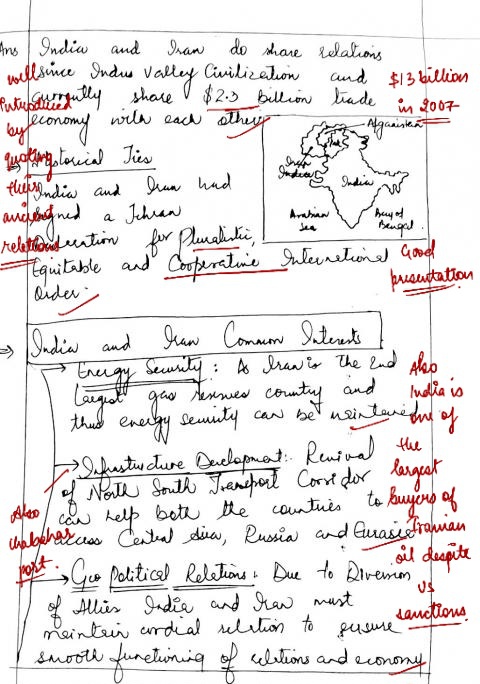 Ans India and Iran do share relations
since Indus Valley Civilization and
currently share $2.3 billion trade
economy with each other
$13 billion
in 2007
well
introduced
by
quoting
their
ancient
relations
Afganistan
Pak
Iran
India
India
Arabian
Sea
Bay of
Bengal
Historical Ties
India and Iran had
signed a Tehran
Declaration for Pluralistic,
Equitable and Cooperative International
Order.
Good
presentation
India and Iran Common Interests
Energy Security: As Iran is the 2nd
largest gas reserves country and
thus energy security can be maintained
Also
India is
one of
the
largest
buyers of
Iranian
oil despite
US
sanctions.
Infrastructure Development:- Revival
of North South Transport Corridor
can help both the countries to
access Central Asia, Russia and Eurasia
Also
chabahar
port.
Geo Political Relations: Due to Diversion
of Allies India and Iran must
maintain cordial relation to ensure
smooth functioning of relations and economy